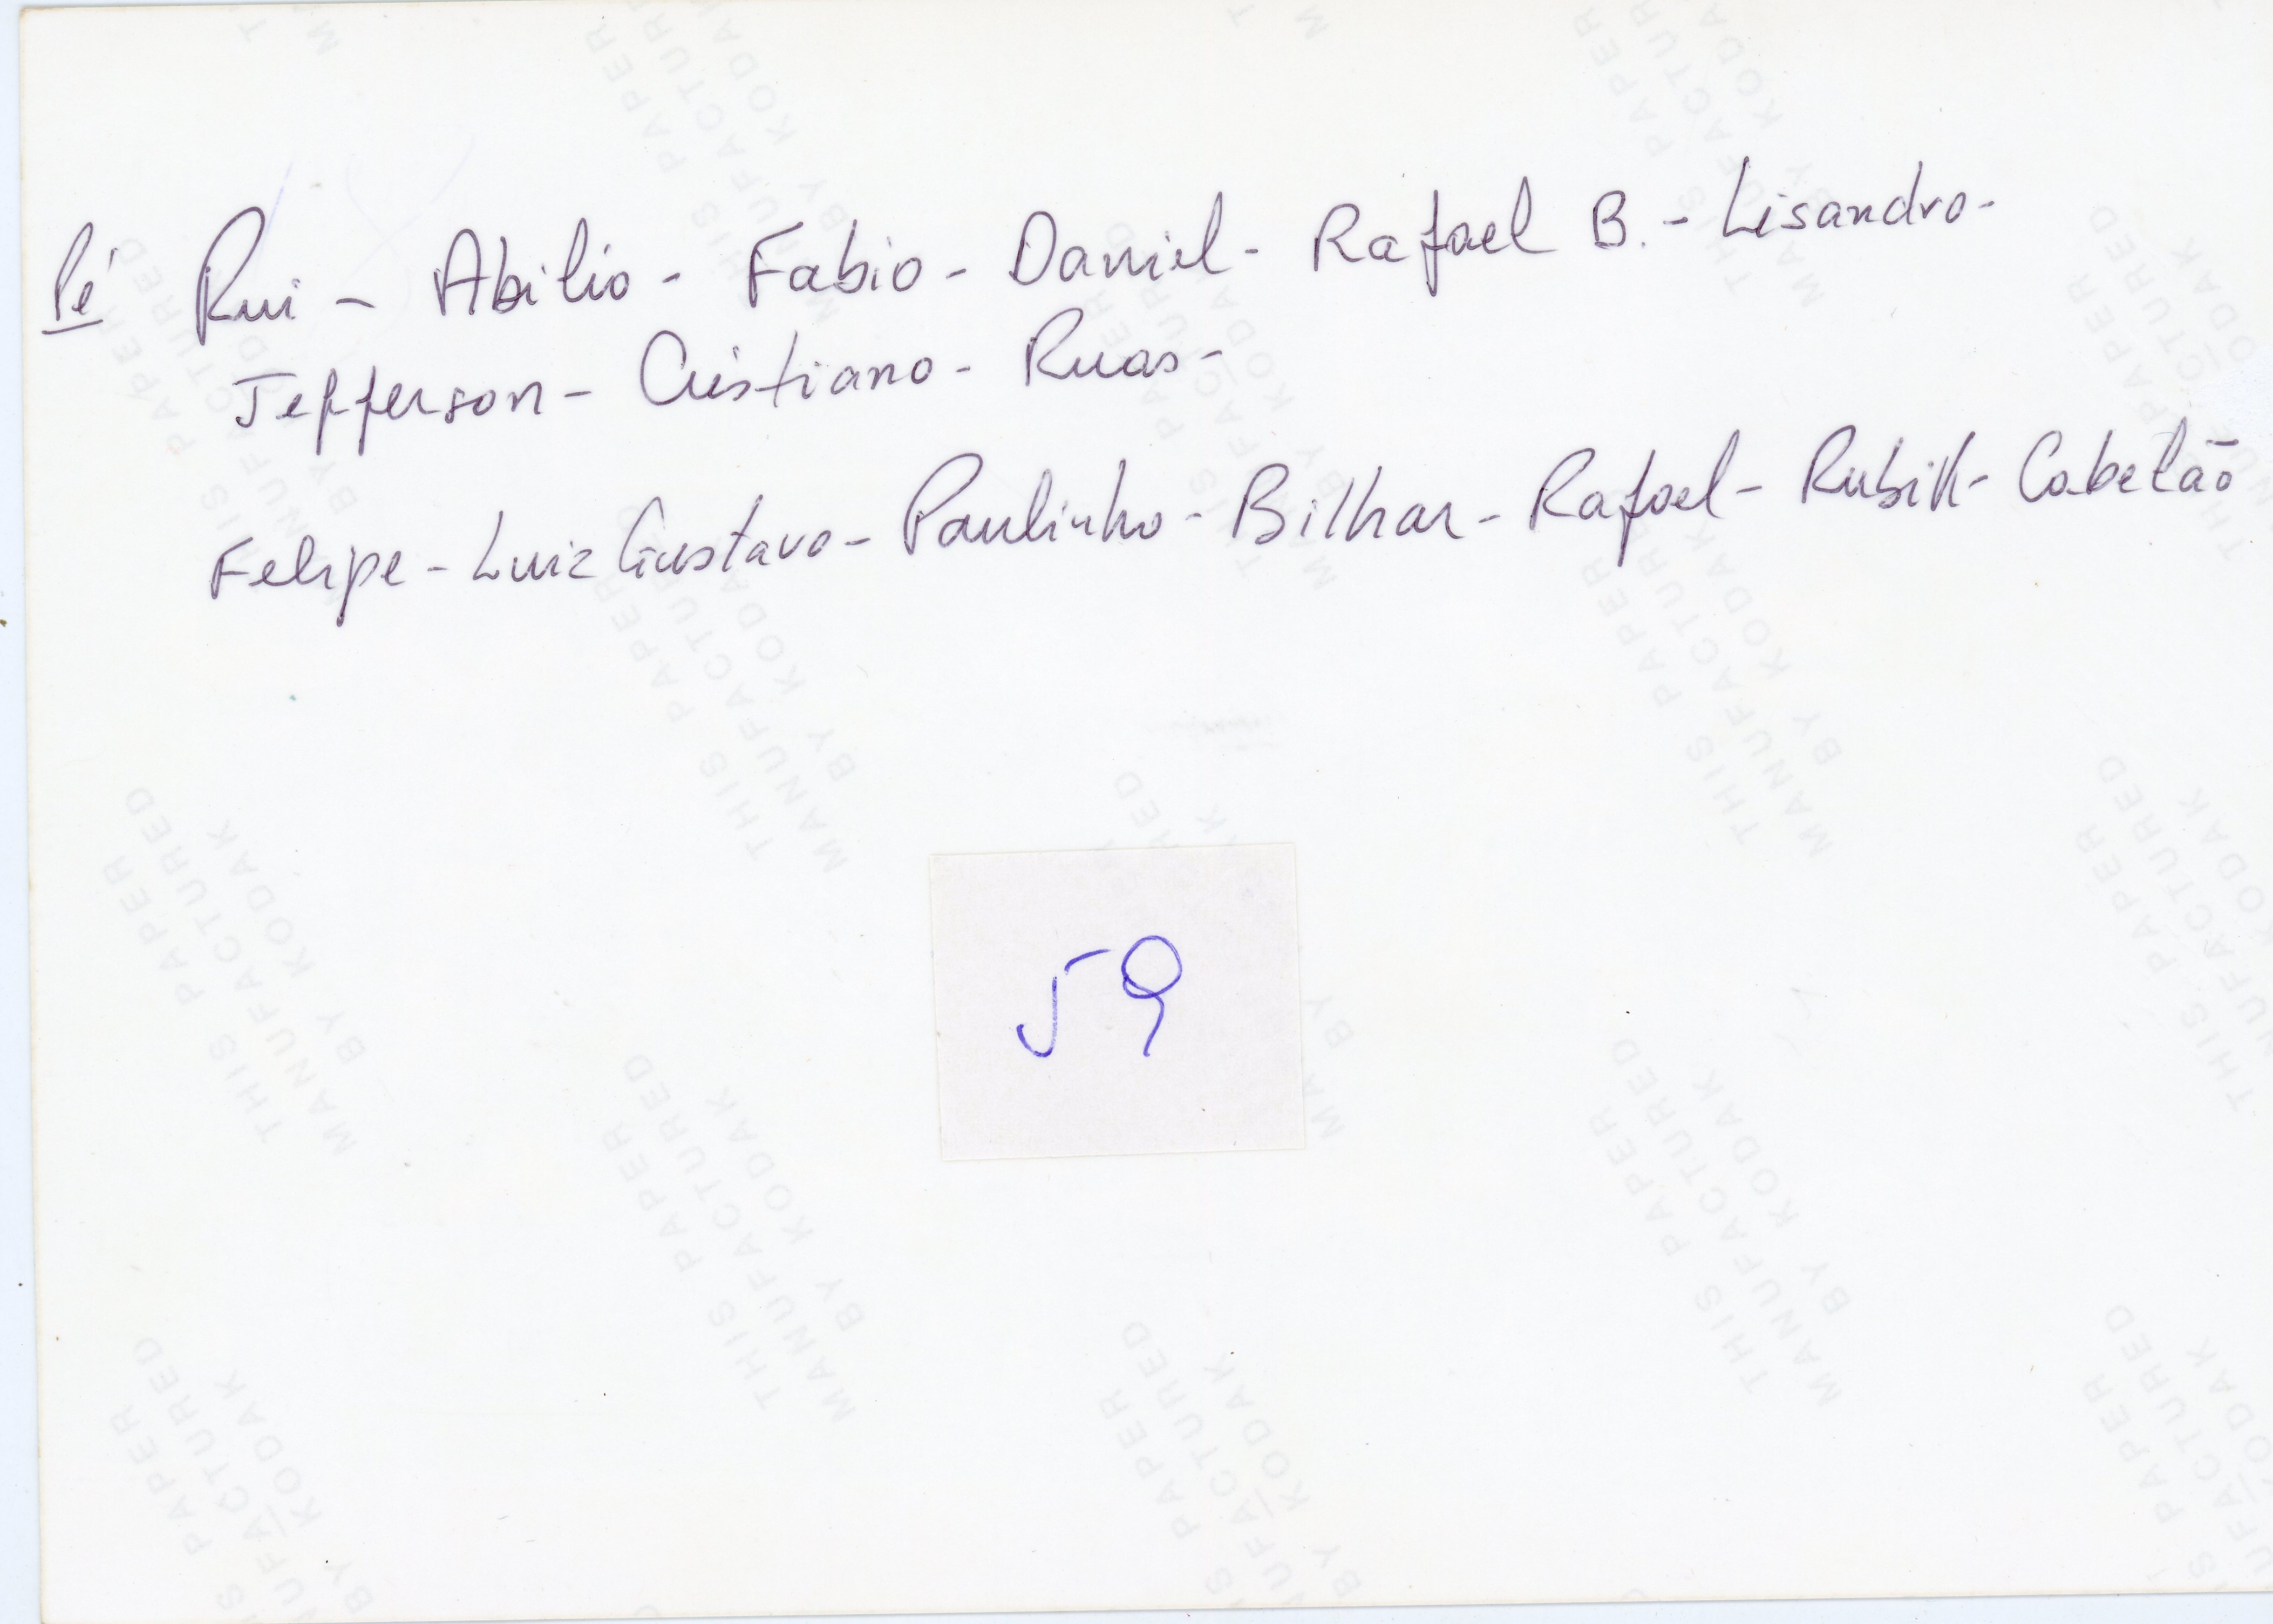 Pé Rui - Abilio - Fabio - Daniel - Rafael B. - Lisandro -
Jefferson - Cristiano - Ruas -
Felipe - Luiz Gustavo - Paulinho - Bilhar - Rafael - Rubik - Cabelão
59
THIS PAPER
MANUFACTURED
BY KODAK